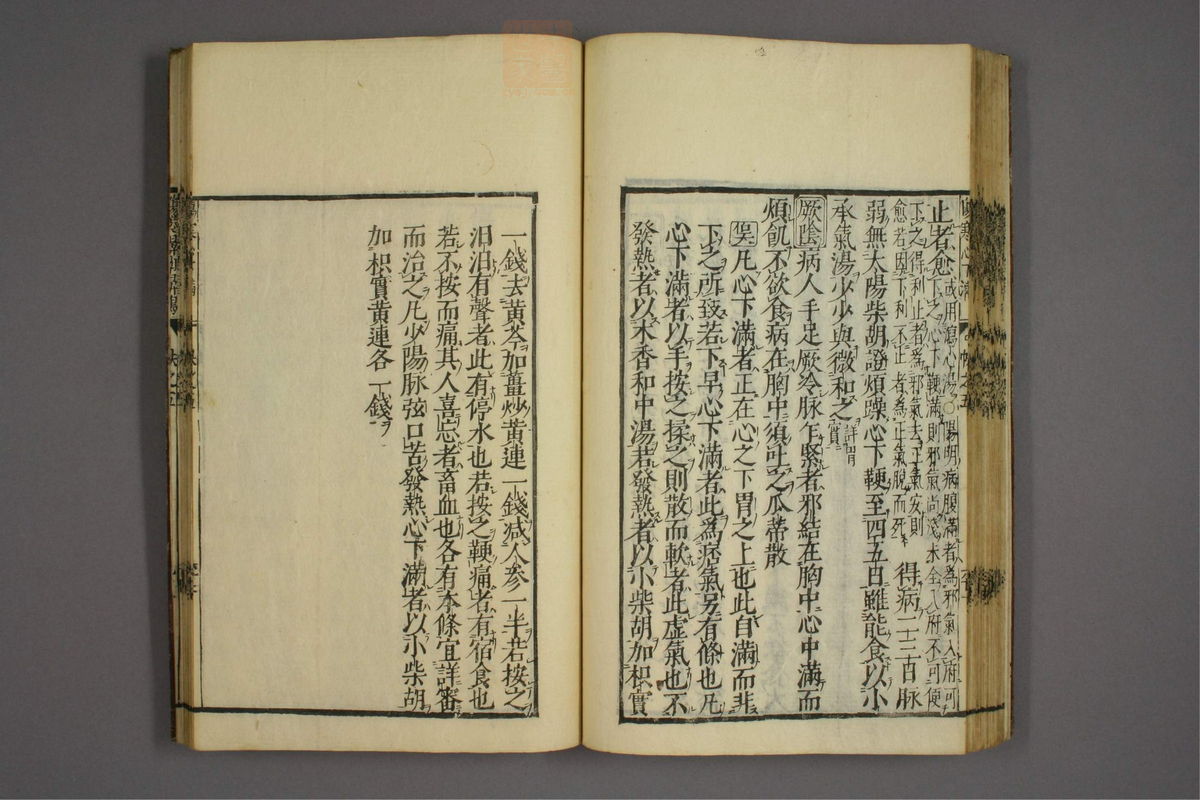 止者愈或用瀉心湯○陽明病腹滿者爲邪氣入府可
下之心下鞕滿則邪氣尚淺未全入府不可便
下之得利止者爲邪氣去正氣安則
愈若因下利不止者爲正氣脫而死
得病二三日脉
弱無太陽柴胡證煩躁心下鞕至四五日雖能食以小
承氣湯少少與微和之詳胃實
厥陰病人手足厥冷脉乍緊者邪結在胸中心中滿而
煩飢不欲食病在胸中須吐之瓜蒂散
凡心下滿者正在心之下胃之上也此自滿而非
下之所致若下早心下滿者此爲痞氣另有條也凡
心下滿者以手按之揉之則散而軟者此虛氣也不
發熱者以木香和中湯若發熱者以小柴胡加枳實
一錢去黃芩加薑炒黃連一錢減人參一半若按之
汨汨有聲者此有停水也若按之鞕痛者有宿食也
若不按而痛其人喜忘者畜血也各有本條宜詳審
而治之凡少陽脉弦口苦發熱心下滿者以小柴胡
加枳實黃連各一錢